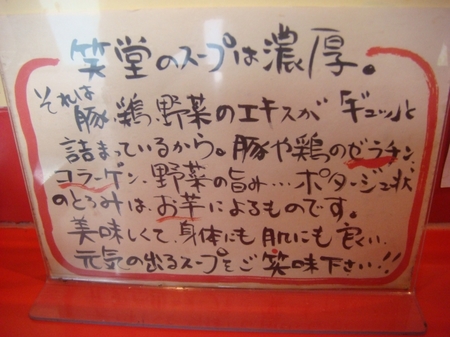 笑堂のスープは濃厚。
それは豚、鶏、野菜のエキスが「ギュッ」と
詰まっているから。豚や鶏のゼラチン、
コラーゲン、野菜の旨み…ポタージュ状
のとろみは、お芋によるものです。
美味しくて、身体にも肌にも良い、
元気の出るスープをご笑味下さい!!